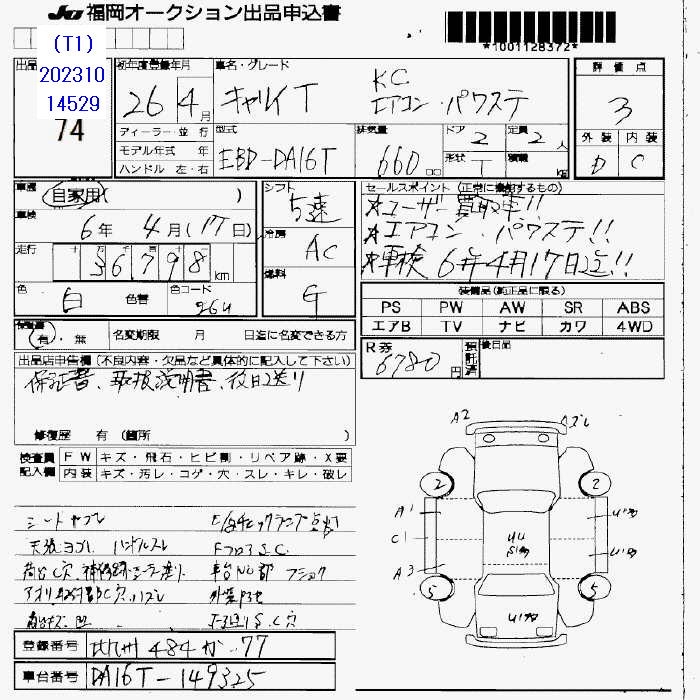 JU 福岡オークション出品申込書
*1001128372*
(T1)
202310
14529
74
初年度登録年月
26年 4月
車名・グレード
キャリイT KC
エアコン・パワステ
評価点
3
外装 内装
D C
ディーラー・並行
モデル年式 年
ハンドル 左・右
型式
EBD-DA16T
排気量
660 cc
ドア 2
形状 T
定員 2人
積載 kg
車歴
自家用( )
車検
6年 4月(17日)
走行
十 万 千 百 十 一
36798 km
色 白 色替 色コード 26U
シフト 5速
冷房 AC
燃料 G
セールスポイント (正常に作動するもの)
★ユーザー買取車!!
★エアコン・パワステ!!
★車検 6年4月17日迄!!
装備品(純正品に限る)
PS PW AW SR ABS
エアB TV ナビ カワ 4WD
R券 6780円
預託済
後日品
有・無 名変期限 月 日迄に名変できる方
出品店申告欄(不良内容・欠品など具体的に記入して下さい)
保証書、取扱説明書、後日送り
修復歴 有(箇所 )
検査員記入欄
FW キズ・飛石・ヒビ割・リペア跡・X要
内装 キズ・汚レ・コゲ・穴・スレ・キレ・破レ
シートヤブレ
天張ヨゴレ ハンドルスレ
FフロアS.C.
登録番号 北九州 484 か 77
車台番号 DA16T-149325
A2
2 2
A1
C1
A3
5 5